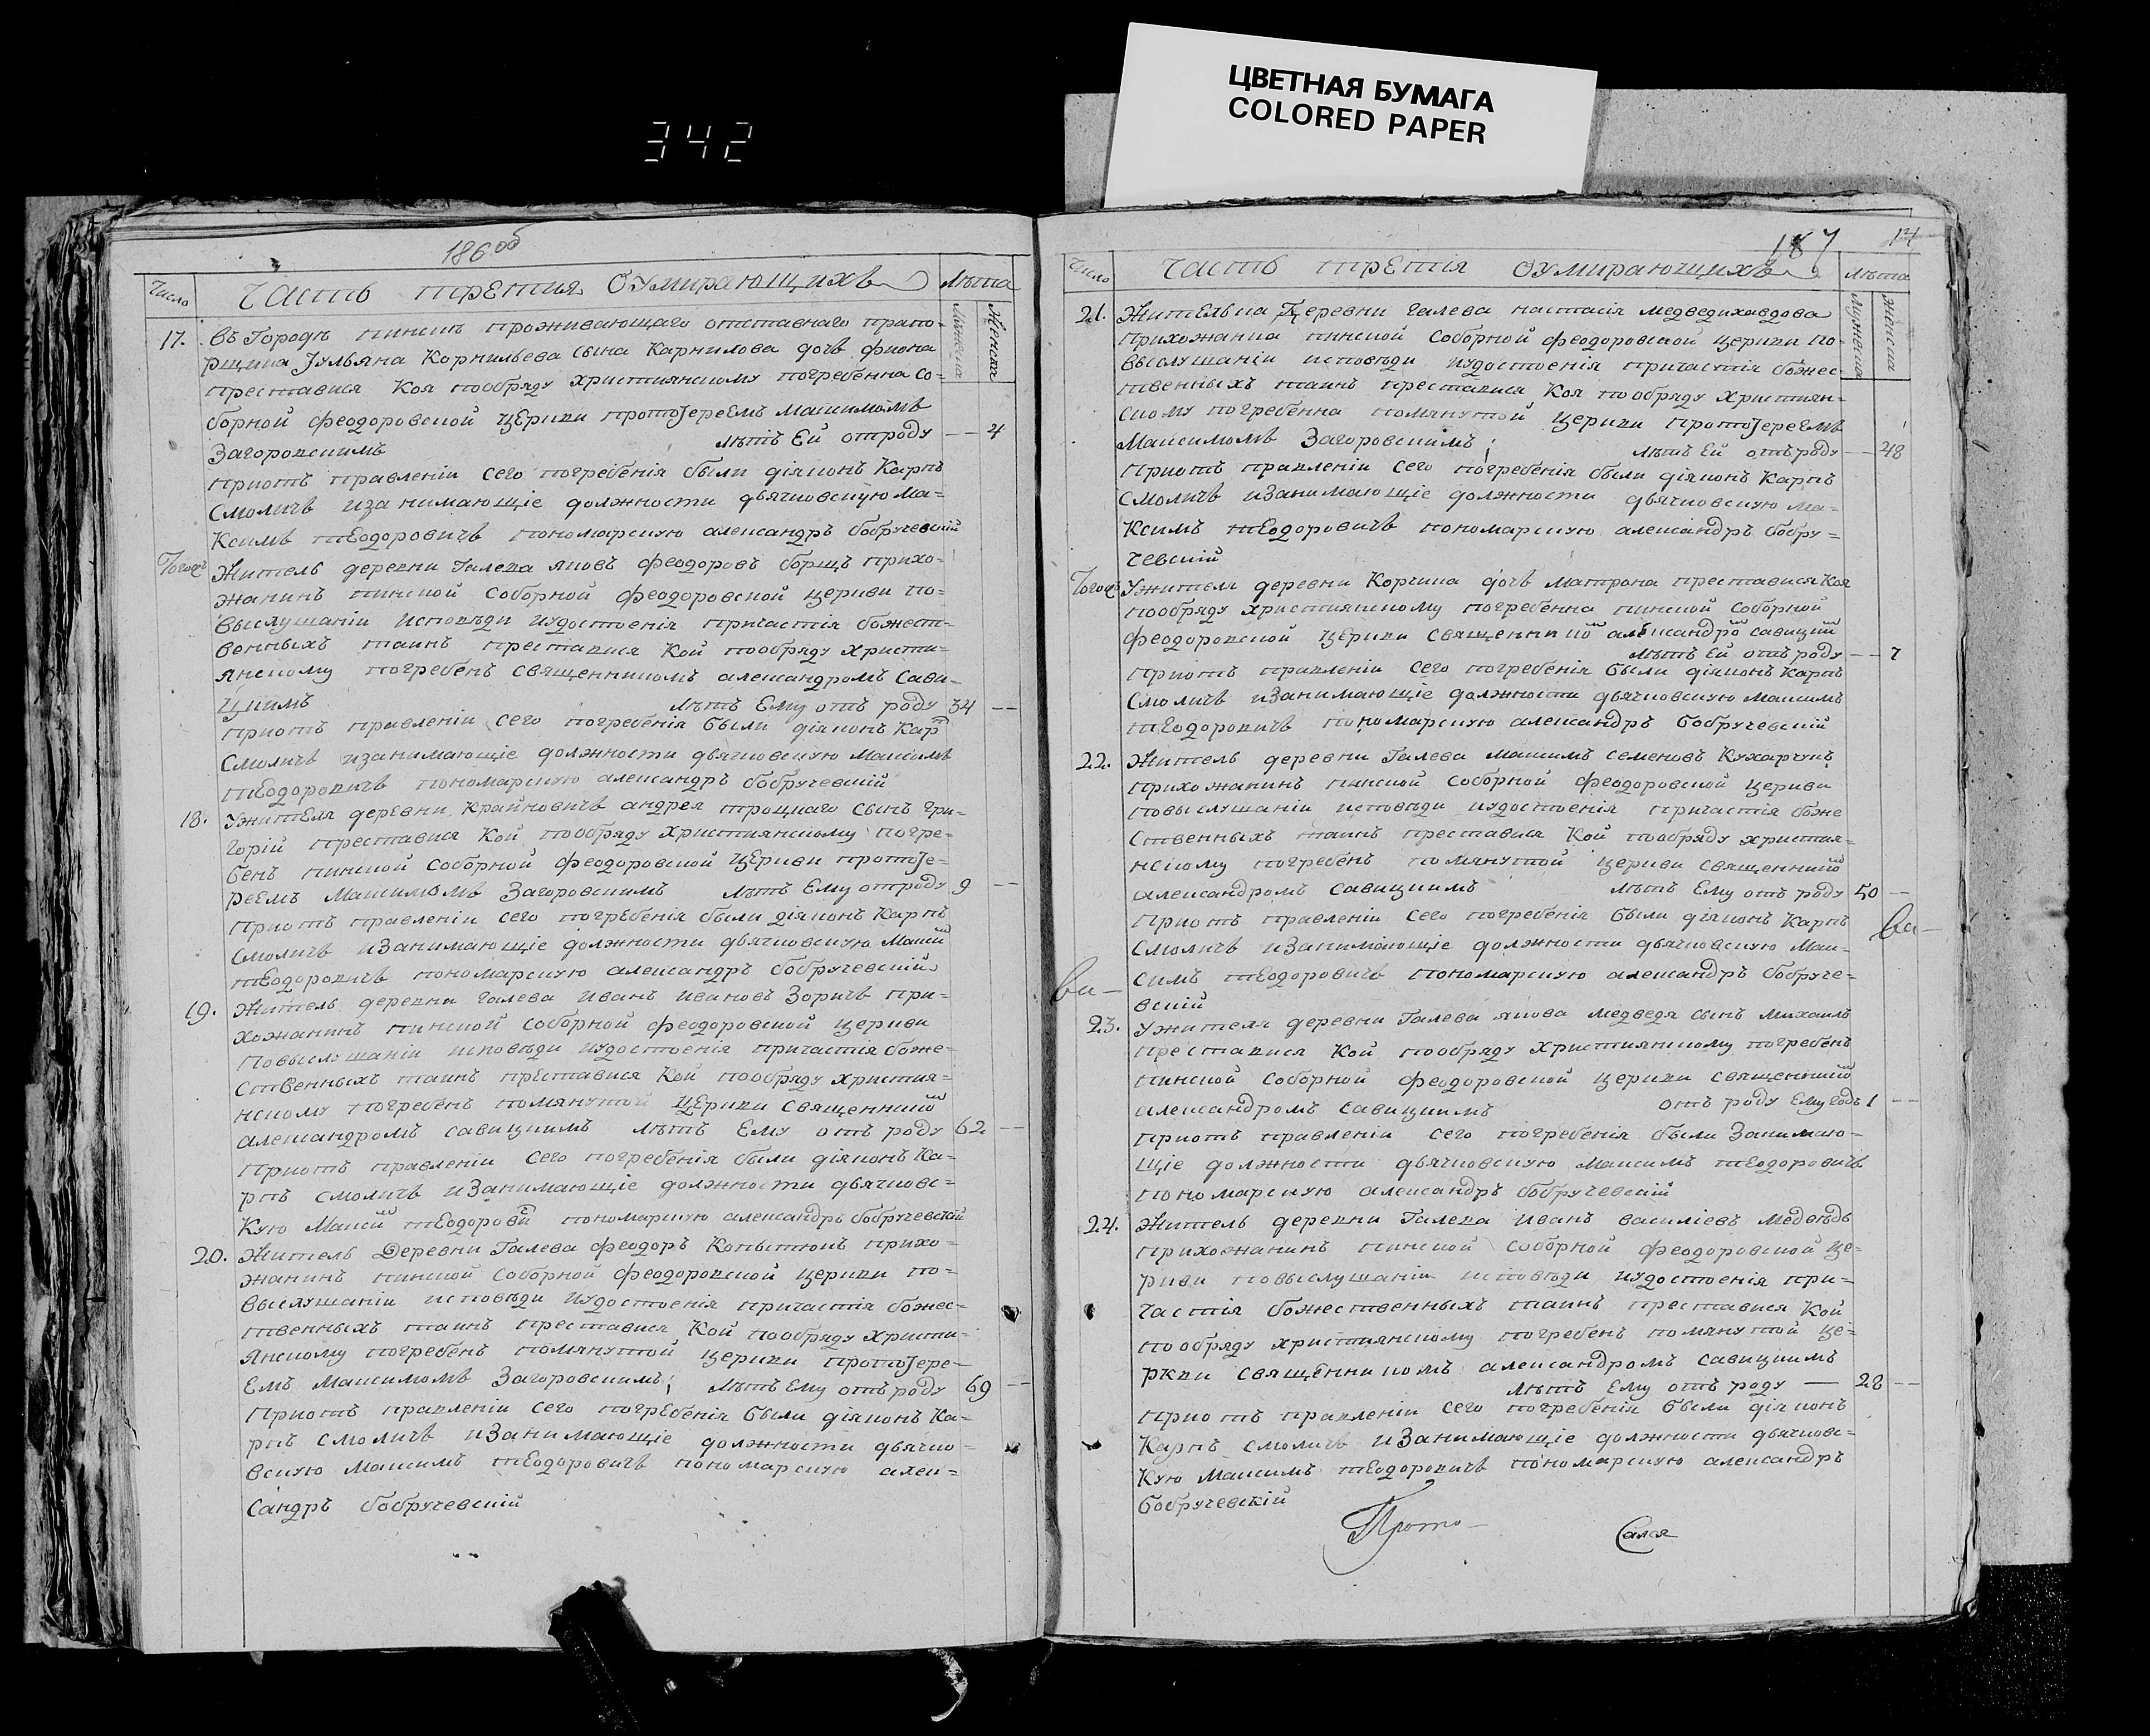 ЦВЕТНАЯ БУМАГА
COLORED PAPER
342
186 об
Число
Часть третия Оумирающихъ
Лѣта
Мужеска
Женска
17. Въ Городѣ пинскѣ проживающаго отставнаго прапо-
рщика Јульяна Корнильева сына Карнилова дочь фиона
преставися Коя пообряду християнскому погребенна со-
борной феодоровской Церкви протоЈереемъ Маѯимомъ
Загоровскимъ лѣтъ Ей отроду — 4
Приотъ правленіи сего погребенія были діяконъ Карпъ
Смоличъ изанимающіе должности дьячковскую Ма-
Ксимъ тЕодоровичъ пономарскую александръ бобручевскій
Тогожъ Житель деревни Галева яковъ феодоровъ борщъ прихо-
жанинъ пинской Соборной феодоровской церкви по-
выслушаніи Исповѣди иудостоенія причастія божест-
венныхъ таинъ преставися Кой пообряду христи-
янскому погребенъ священникомъ александромъ Сави-
цкимъ лѣтъ Ему отъ роду 34 —
приотъ правленіи сего погребенія были діяконъ Карп
Смоличъ изанимающіе должности дьячковскую Максимъ
тЕодоровичъ пономарскую александръ бобручевскій
18. Ужителя деревни Крайновичъ андрея троцкаго сынъ гри-
горій преставися Кой пообряду християнскому погре-
бенъ пинской соборной феодоровской Церкви протоЈе-
реемъ Максимомъ Загоровскимъ лѣтъ Ему отроду 9 —
Приотъ правленіи сего погребенія были діяконъ Карпъ
Смоличъ изанимающіе должности дьячковскую Макси
тЕодоровичъ пономарскую александръ бобручевскій
19. Житель деревни галева Иванъ Ивановъ Зоричъ при-
хожанинъ пинской соборной феодоровской церкви
Повыслушаніи исповѣди иудостоенія причастія боже-
ственныхъ таинъ преставися Кой пообряду христия-
нскому погребенъ помянутой Церкви священникѡ
александромъ савицкимъ лѣтъ Ему отъ роду 62 —
Приотъ правленіи сего погребенія были діяконъ Ка-
рпъ смоличъ изанимающіе должности дьячковс-
Кую Макси тЕодорови пономарскую александръ бобручевскій
20. Житель Деревни Галева феодоръ Копытюкъ прихо-
жанинъ пинской соборной феодоровской церкви по-
выслушаніи исповѣди иудостоенія причастія божес-
твенныхъ таинъ преставися Кой пообряду христи-
янскому погребенъ помянутой Церкви протоЈере-
Емъ Максимомъ Загоровскимъ; лѣтъ Ему отъ роду 69 —
Приотъ правленіи сего погребенія были діяконъ Ка-
рпъ смоличъ изанимающіе должности дьячко-
вскую Максимъ тЕодоровичъ пономарскую алек-
сандръ бобручевскій
187
14
Число
Часть третія Оумирающихъ
лѣта
Мужеска
Женска
21. Жителька Деревни галева настасія медведихавдова
прихожанка пинской Соборной феодоровской церкви по-
выслушаніи исповѣди иудостоенія причастія божес-
твенныхъ таинъ преставися Коя пообряду християн-
скому погребенна помянутой церкви протоЈереемъ
Максимомъ Загоровскимъ; лѣтъ Ей отъ роду — 48
Приотъ правленіи сего погребенія были діяконъ Карпъ
Смоличъ изанимающіе должности дьячковскую ма-
Ксимъ тЕодоровичъ пономарскую александръ бобру-
чевскій
Тогожъ Ужителя деревни Корчина дочь Матрона преставися Коя
пообряду християнскому погребенна пинской соборной
феодоровской Церкви священникѡ александрѡ савицки
лѣтъ Ей отъ роду — 7
Приотъ правленіи сего погребенія были діяконъ Карпъ
Смоличъ изанимающіе должности дьячковскую Максимъ
тЕодоровичъ пономарскую александръ бобручевскій
22. Житель деревни Галева Максимъ Семеновъ Кухарчукъ
прихожанинъ пинской Соборной феодоровской церкви
повыслушаніи исповѣди иудостоенія причастія боже
ственныхъ таинъ преставися Кой пообряду христия-
нскому погребенъ помянутой церкви священникѡ
александромъ савицкимъ лѣтъ Ему отъ роду 50 —
Приотъ правленіи сего погребенія были діяконъ Карпъ
Смоличъ изанимающіе должности дьячковскую Мак-
симъ тЕодоровичъ пономарскую александръ бобруче-
вскій
23. Ужителя деревни Галева якова медведя сынъ Михаилъ
преставися Кой пообряду християнскому погребенъ
пинской соборной феодоровской церкви священникѡ
александромъ савицкимъ отъ роду Ему годъ 1 —
приотъ правленіи сего погребенія были Занимаю-
щіе должности дьячковскую Максимъ тЕодоровичъ
пономарскую александръ бобручевскій
24. Житель деревни Галева Иванъ василіевъ Медвѣдь
прихожанинъ пинской соборной феодоровской це-
ркви повыслушаніи исповѣди иудостоенія при-
частія божественныхъ таинъ преставися Кой
пообряду християнскому погребенъ помянутой це-
ркви священникомъ александромъ савицкимъ
лѣтъ Ему отъ роду — 28 —
приотъ правленіи сего погребенія были діяконъ
Карпъ смоличъ изанимающіе должности дьячковс-
Кую Максимъ тЕодоровичъ пономарскую александръ
бобручевскій
Прото-